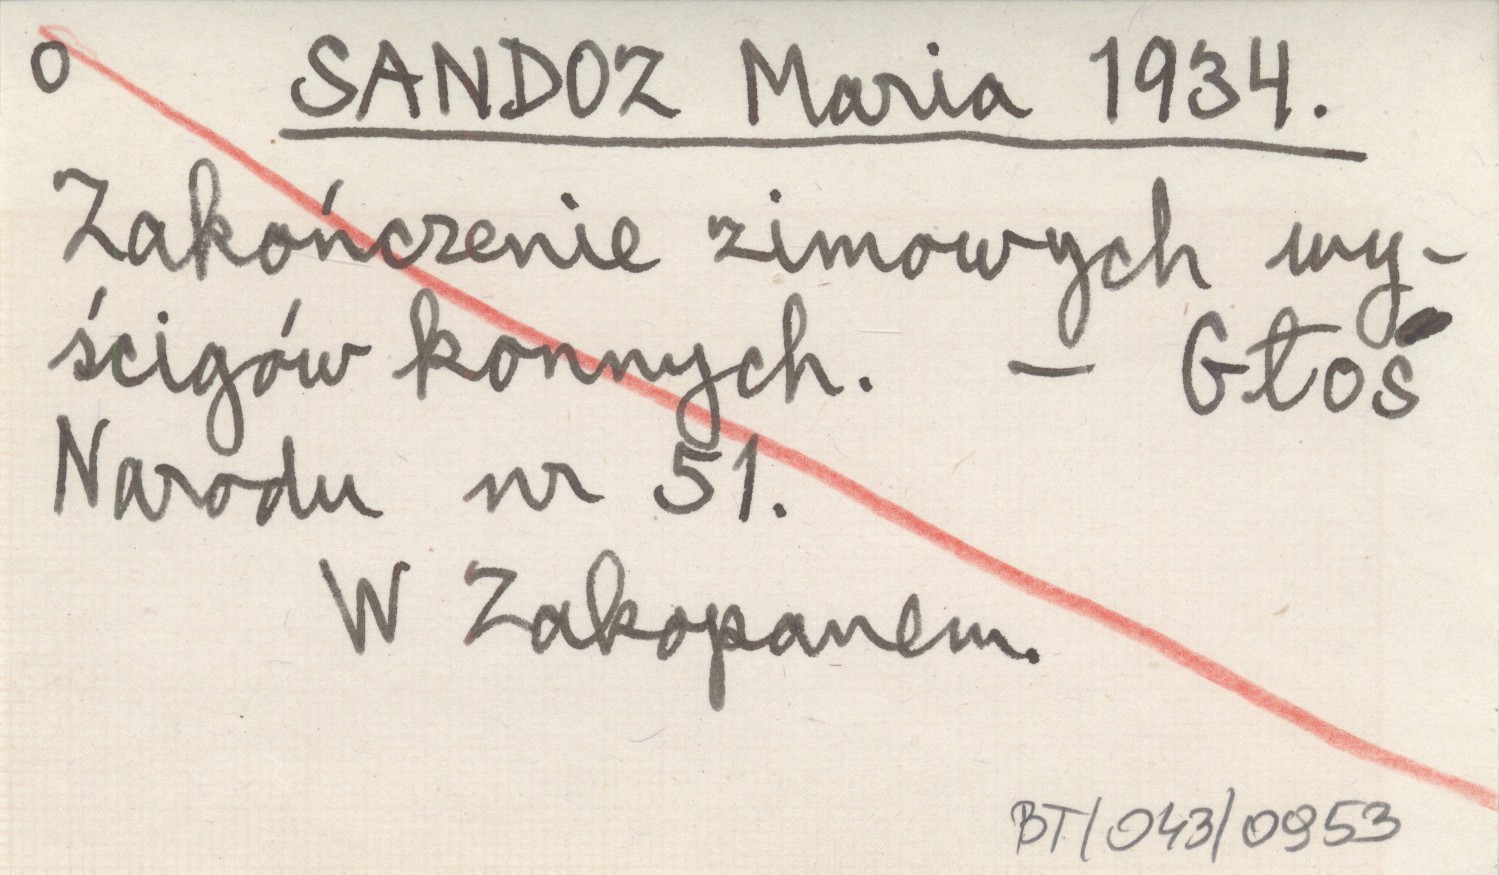 o SANDOZ Maria 1934.
Zakończenie zimowych wy-
ścigów konnych. — Głos
Narodu nr 51.
W Zakopanem.
BT/043/0953